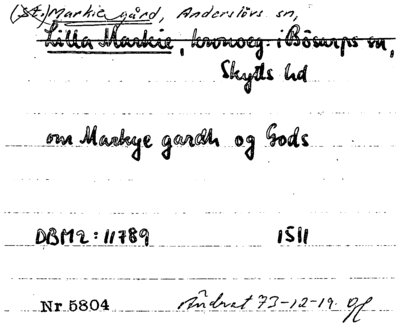 (St.) Markie gård, Anderslövs sn,
Lilla Markie, kronoeg. i Bösarps sn,
Skytts hd
om Markye gardh og Gods
DBM2:11789 1511
Nr 5804 Ändrat 73-12-19.